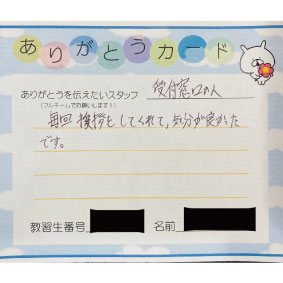 ありがとうカード
ありがとうを伝えたいスタッフ 受付窓口の人
(フルネームでお願いします！)
毎回挨拶をしてくれて、気分が良かった
です。
教習生番号 名前